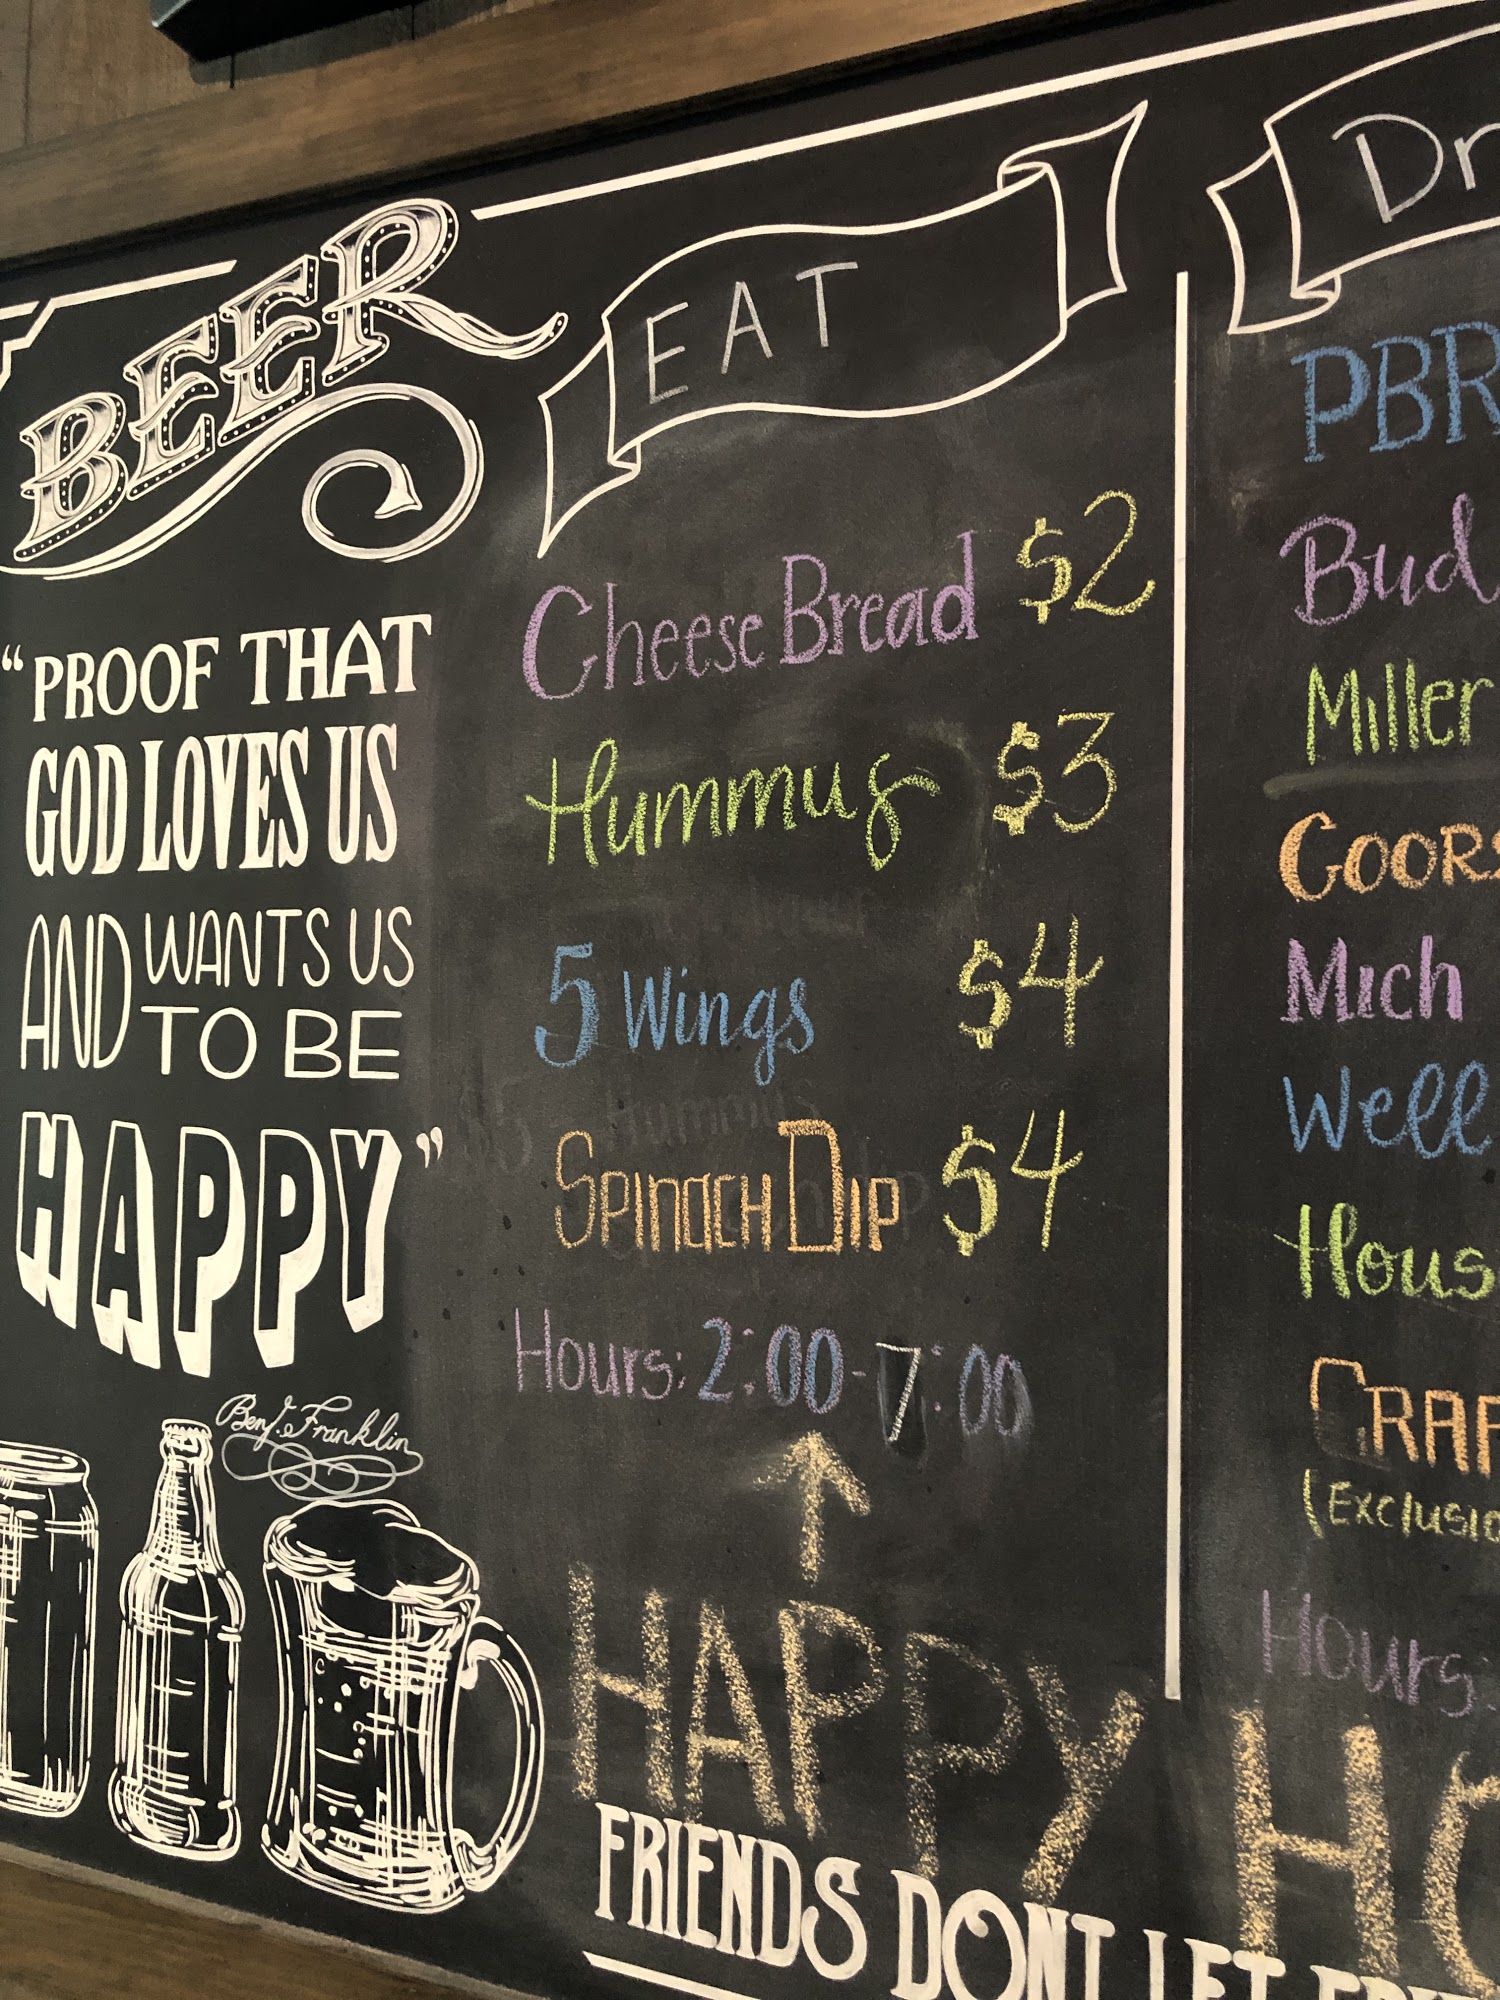 BEER
"PROOF THAT
GOD LOVES US
AND WANTS US
TO BE
HAPPY"
Benj. Franklin
EAT
Cheese Bread $2
Hummus $3
5 Wings $4
Spinach Dip $4
Hours: 2:00-7:00
HAPPY HO
FRIENDS DONT LET FRIE
Dr
PBR
Bud
Miller
Coors
Mich
Well
Hous
CRAF
(Exclusio
Hours: